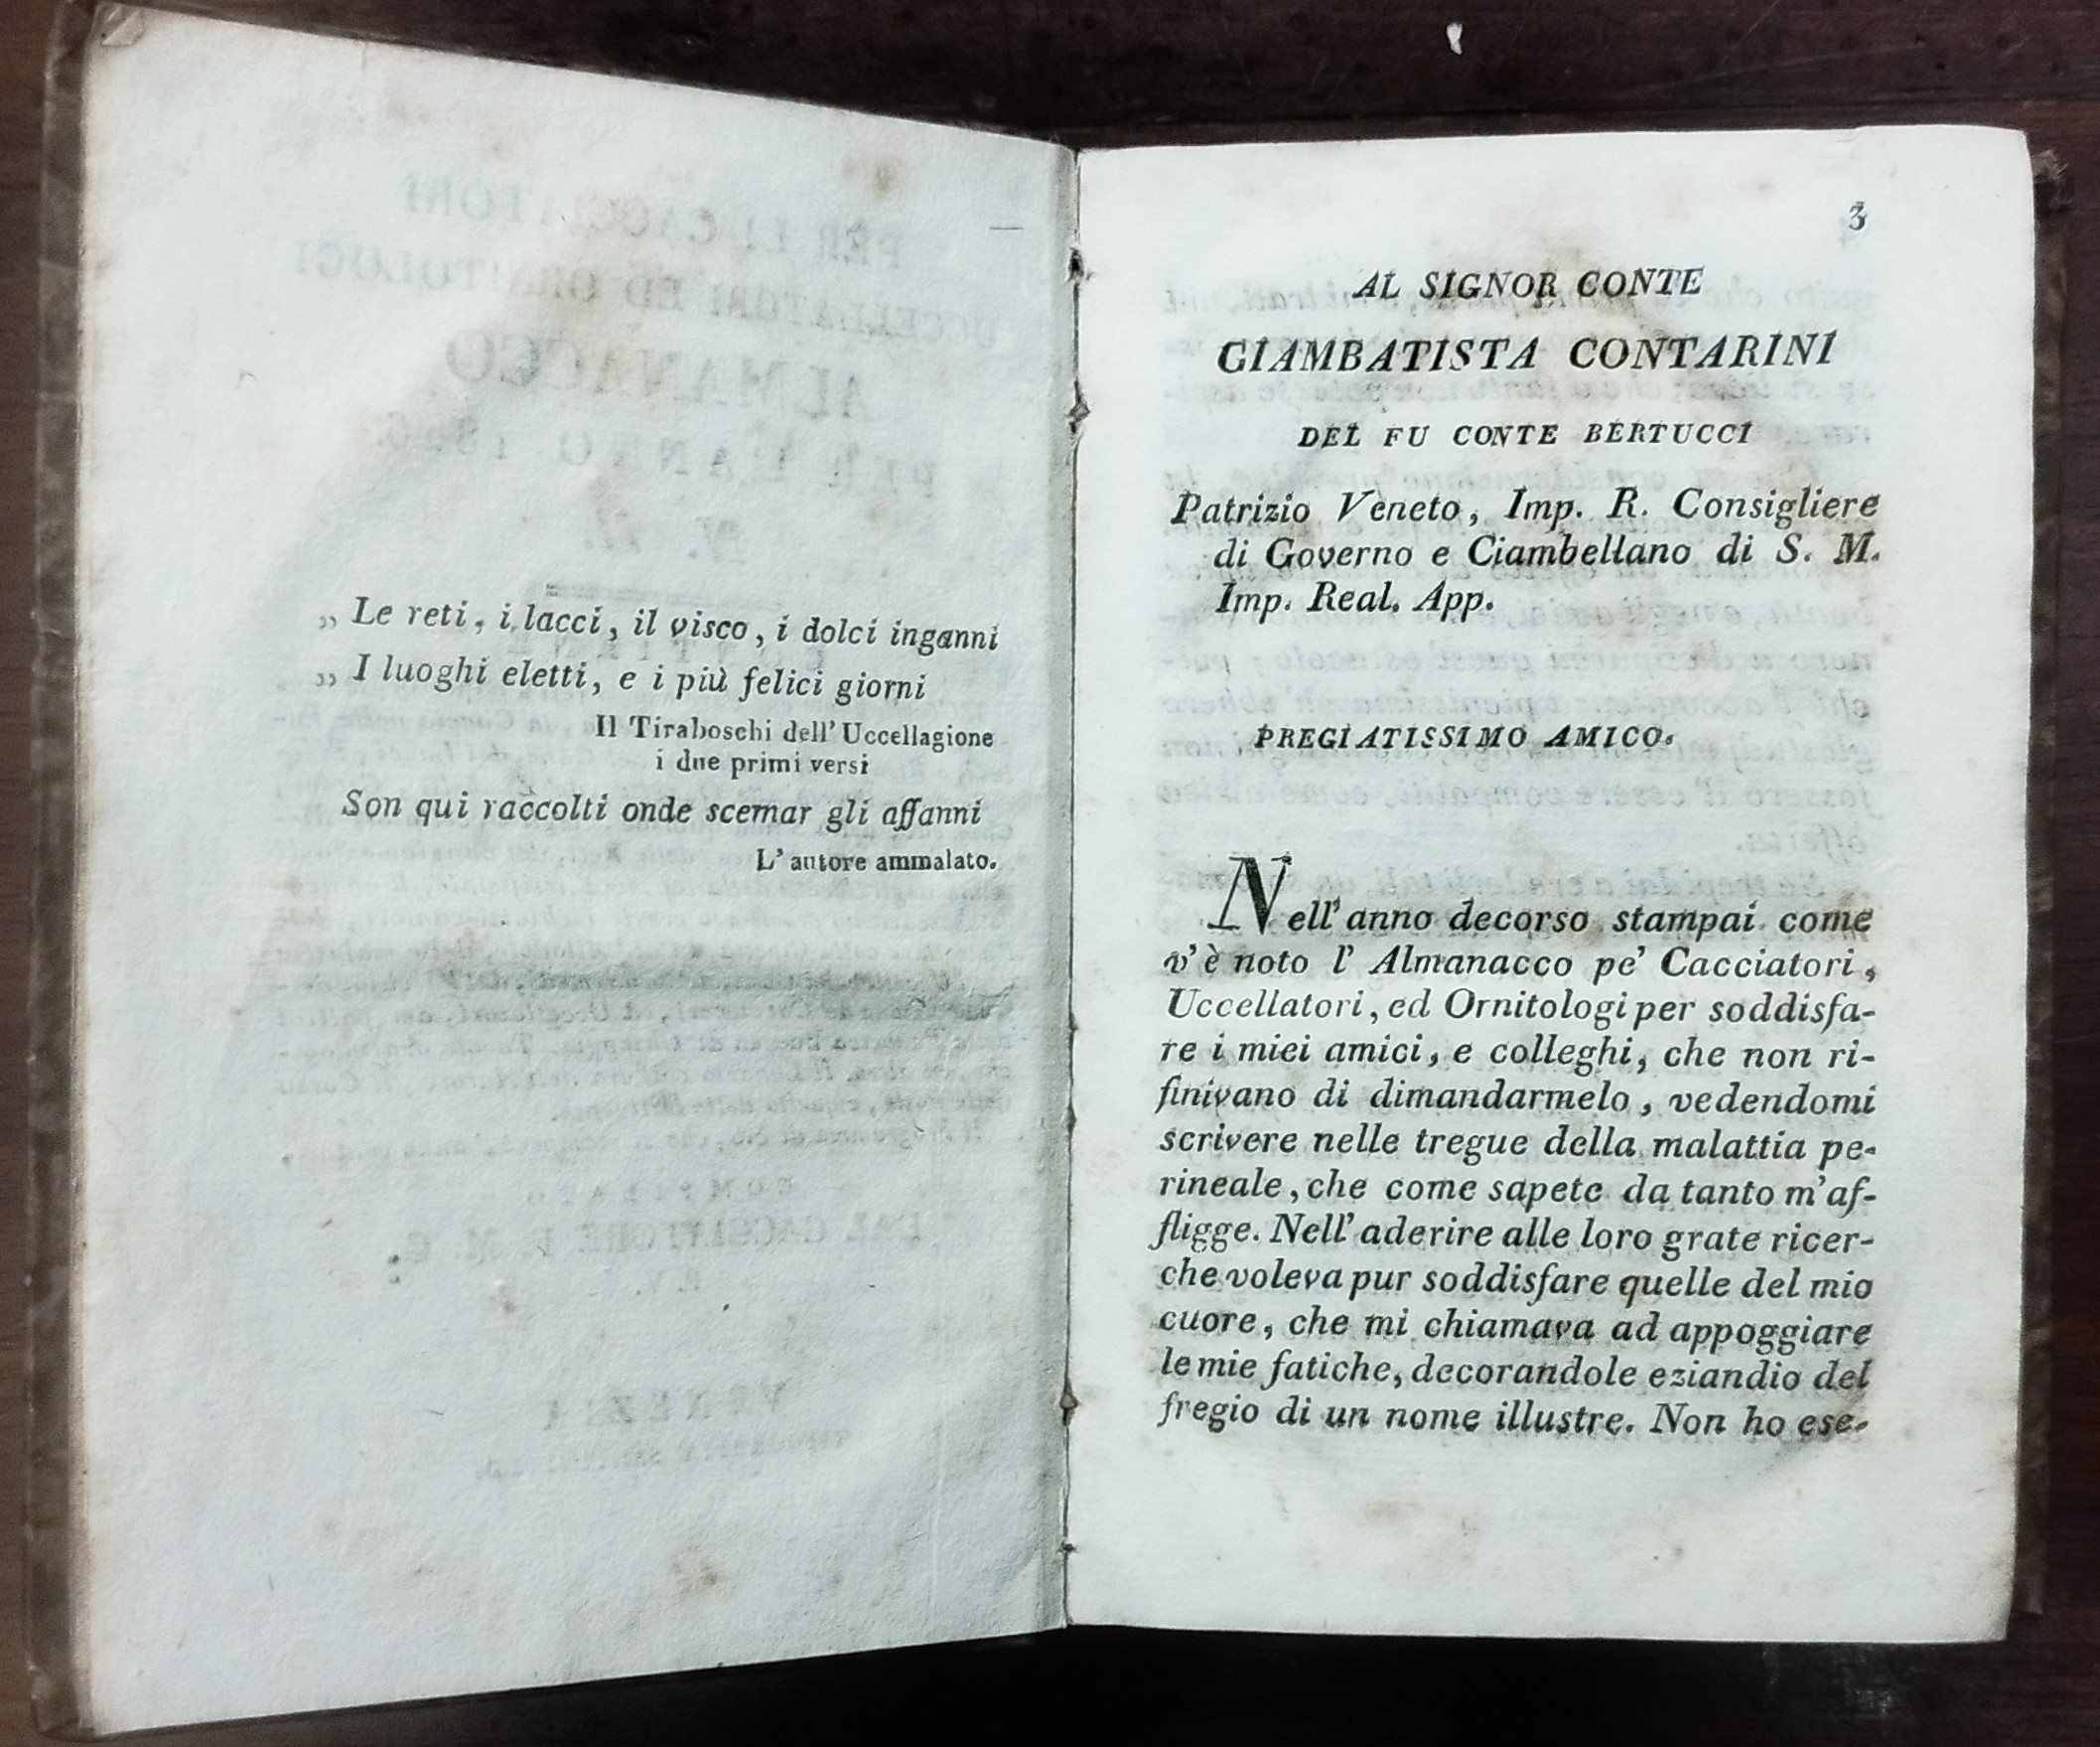 „ Le reti, i lacci, il visco, i dolci inganni
„ I luoghi eletti, e i più felici giorni
Il Tiraboschi dell' Uccellagione
i due primi versi
Son qui raccolti onde scemar gli affanni
L' autore ammalato.
3
AL SIGNOR CONTE
GIAMBATISTA CONTARINI
DEL FU CONTE BERTUCCI
Patrizio Veneto, Imp. R. Consigliere
di Governo e Ciambellano di S. M.
Imp. Real. App.
PREGIATISSIMO AMICO.
Nell' anno decorso stampai come
v' è noto l' Almanacco pe' Cacciatori,
Uccellatori, ed Ornitologi per soddisfa-
re i miei amici, e colleghi, che non ri-
finivano di dimandarmelo, vedendomi
scrivere nelle tregue della malattia pe-
rineale, che come sapete da tanto m' af-
fligge. Nell' aderire alle loro grate ricer-
che voleva pur soddisfare quelle del mio
cuore, che mi chiamava ad appoggiare
le mie fatiche, decorandole eziandio del
fregio di un nome illustre. Non ho ese-